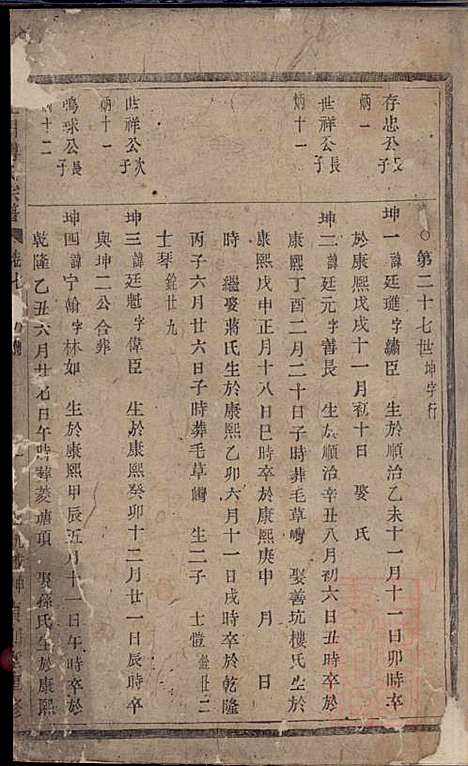 ○第二十七世坤字行
存忠公長子
炳一
坤一諱廷璡字繡臣 生於順治乙未十一月十一日卯時卒
於康熙戊戌十一月初十日 娶 氏
世祥公長子
炳十一
坤二諱廷元字善長 生於順治辛丑八月初六日丑時卒於
康熙丁酉二月二十日子時葬毛草嶹 娶善坑樓氏生於
康熙戊申正月十八日巳時卒於康熙庚申 月 日
時 繼娶蔣氏生於康熙乙卯六月十一日戌時卒於乾隆
丙子六月廿六日子時葬毛草嶹 生二子 士愷銓廿二
士琴銓廿九
世祥公次子
炳十一
坤三諱廷魁字偉臣 生於康熙癸卯十二月廿一日辰時卒
與坤二公合葬
鳴球公長子
炳十二
坤四諱宁翰字林如 生於康熙甲辰五月十一日午時卒於
乾隆乙丑六月廿七日午時葬菱塘頂 娶孫氏生於康熙
宗譜
重修